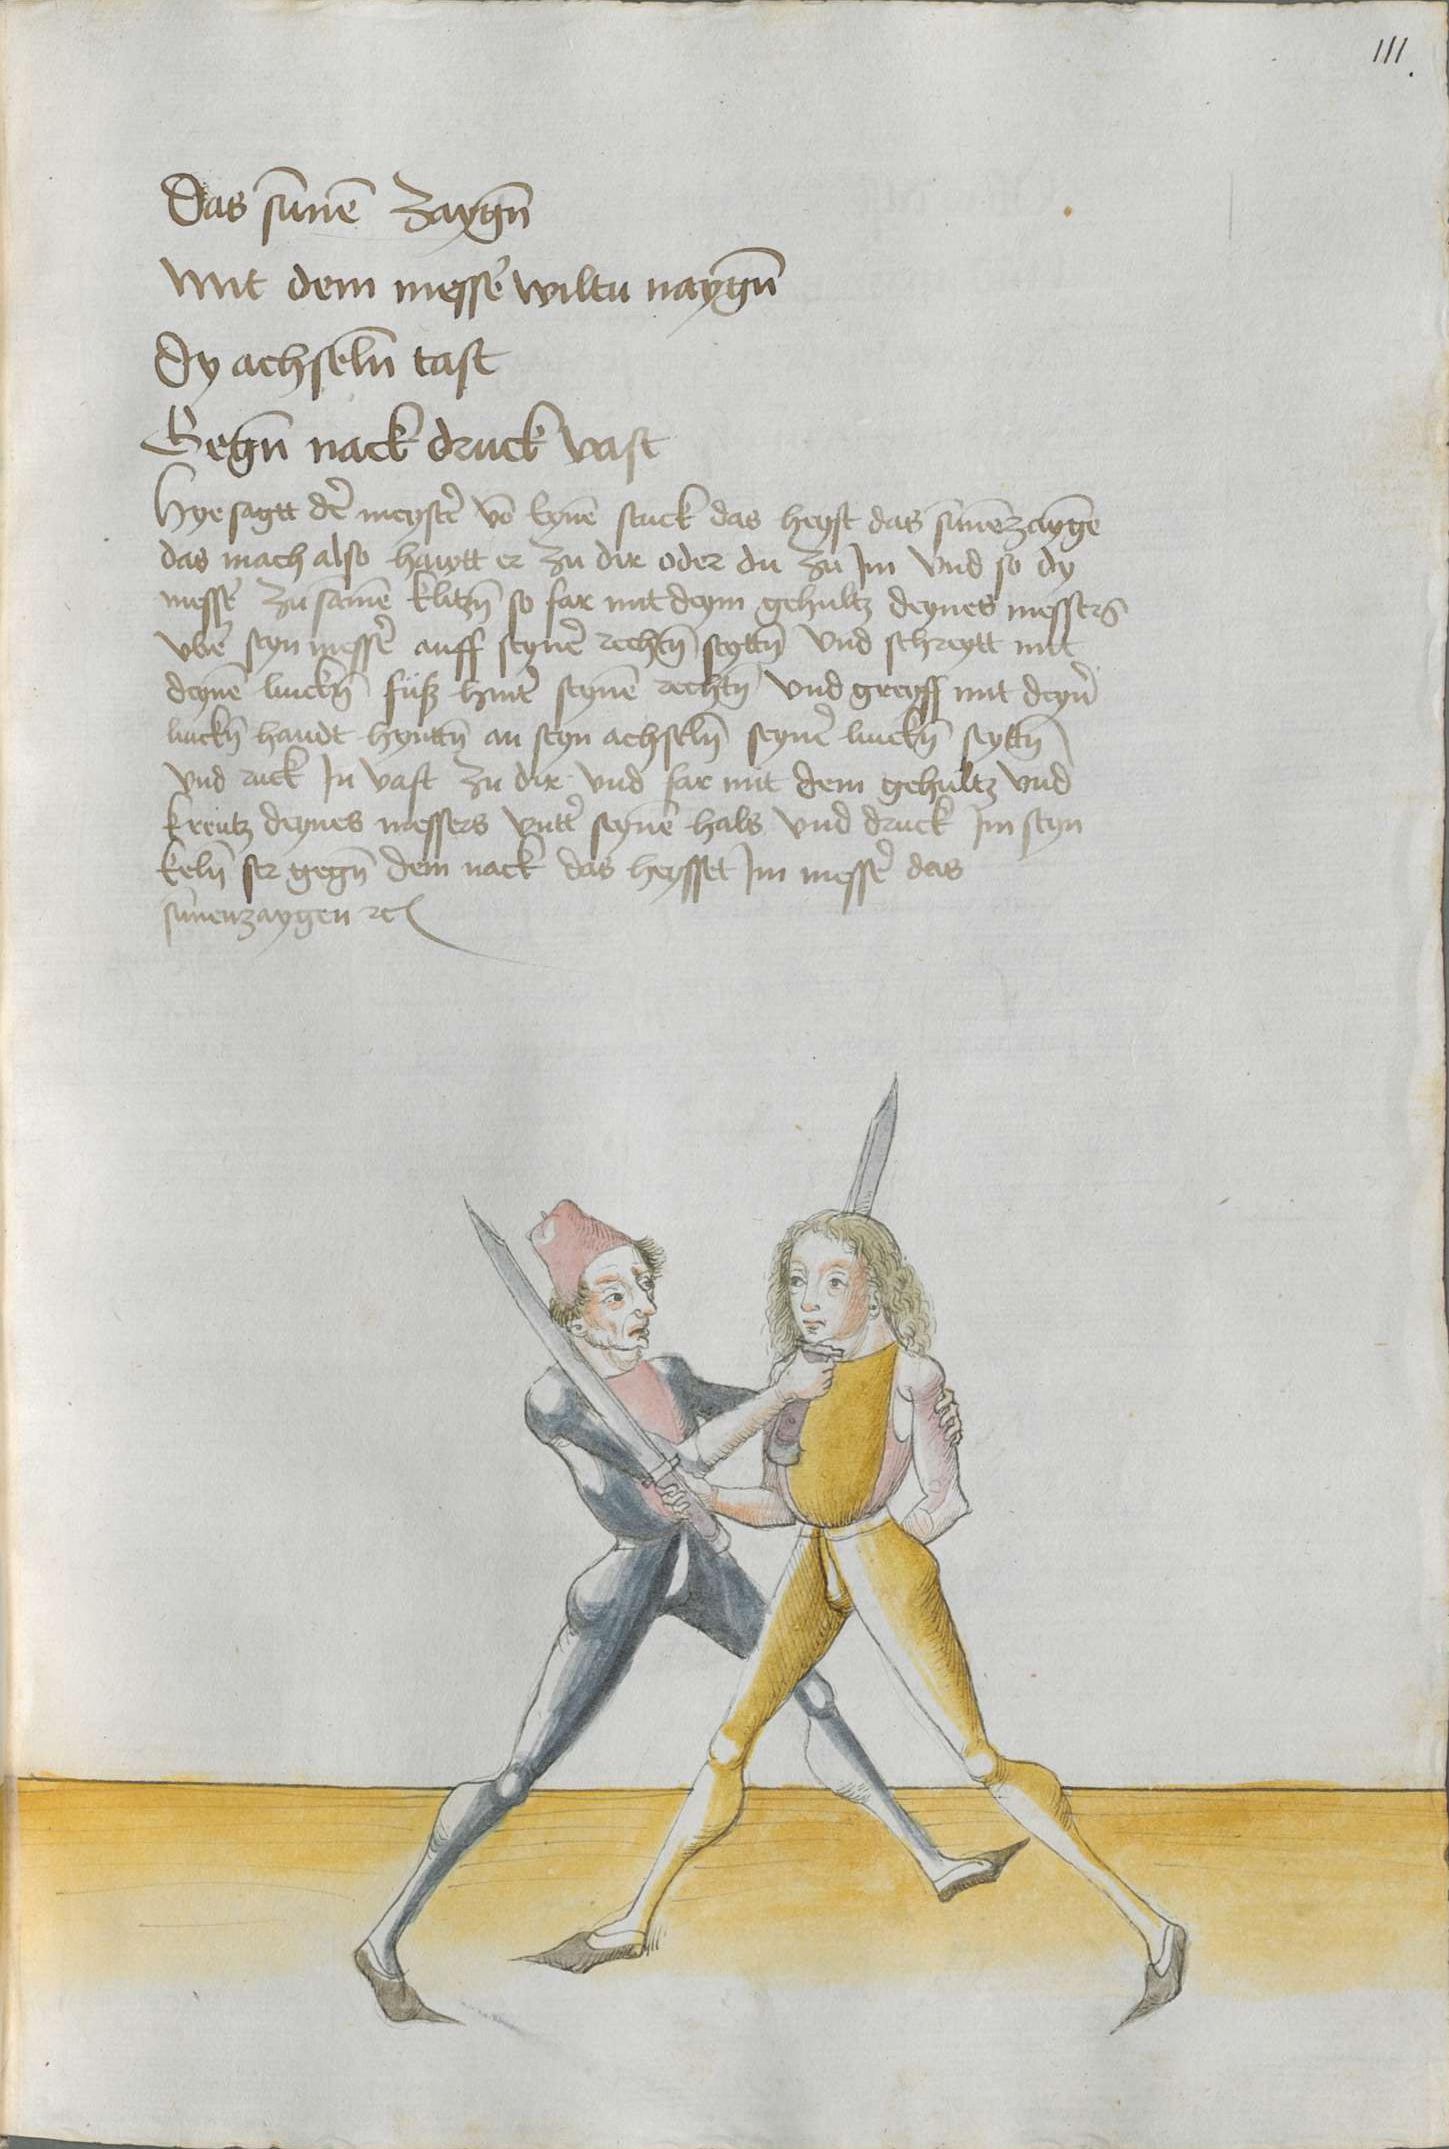 111.
Das sūnē Zaygn̄
Mit dem messē wiltu naygn̄
Dy achseln̄ tast
Gegn̄ nack druck vast
Hye sagtt der̄ meyster̄ vō eynē stuck das heyst das sūnēzaygē
das mach also hawtt er zu dir oder du zu Im Vnd so dy
messē zusamē klitzn̄ so far mit deym gehultz deynes messers
vbē seyn messer̄ auff seyner̄ rechtn̄ seyttn̄ Vnd schreytt mit
deynē linckn̄ fuß hinter̄ seynē rechtn̄ Vnd greyff mit deyn̄
linckn̄ handt hynttn̄ an seyn achseln̄ seyner̄ linckn̄ seyttn̄
Vnd ruck In vast zu dir Vnd far mit dem gehultz Vnd
kreutz deynes messers vntter̄ seynē hals Vnd druck Im seyn
keln̄ ser gegn̄ dem nack das heysset Im messer̄ das
sūnenzaygen